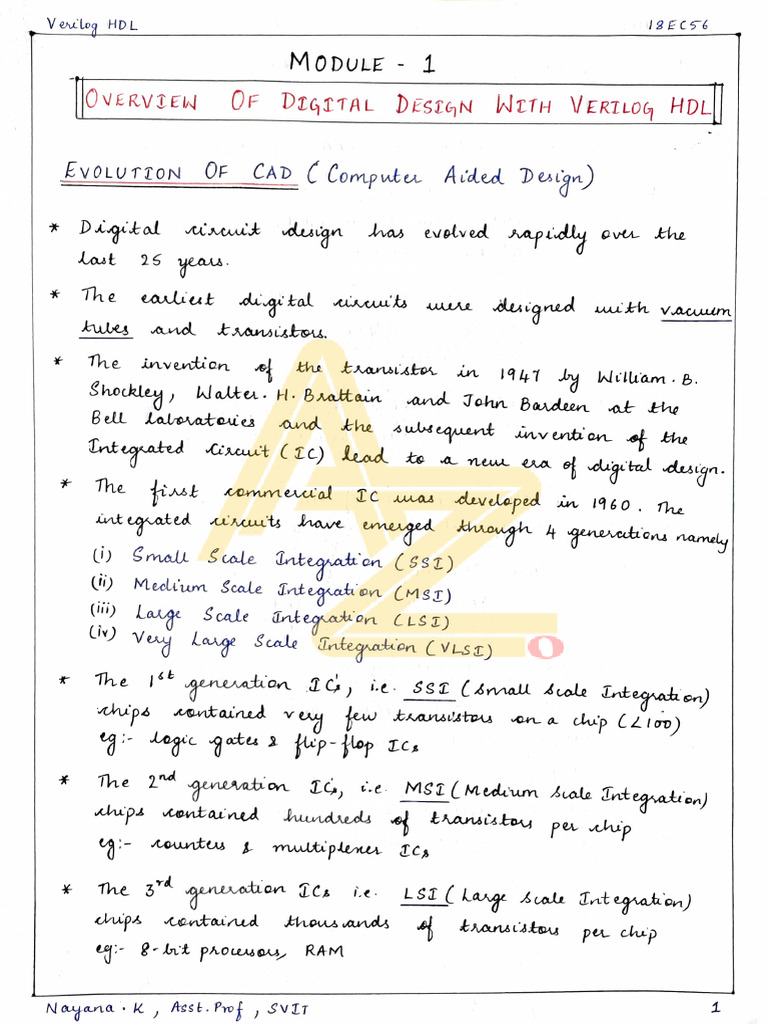 Verilog HDL 18EC56
MODULE - 1
OVERVIEW OF DIGITAL DESIGN WITH VERILOG HDL
EVOLUTION OF CAD (Computer Aided Design)
* Digital circuit design has evolved rapidly over the
last 25 years.
* The earliest digital circuits were designed with vacuum
tubes and transistors.
* The invention of the transistor in 1947 by William.B.
Shockley, Walter.H.Brattain and John Bardeen at the
Bell laboratories and the subsequent invention of the
Integrated Circuit (IC) lead to a new era of digital design.
* The first commercial IC was developed in 1960. The
integrated circuits have emerged through 4 generations namely
(i) Small Scale Integration (SSI)
(ii) Medium Scale Integration (MSI)
(iii) Large Scale Integration (LSI)
(iv) Very Large Scale Integration (VLSI)
* The 1st generation IC's, i.e. SSI (Small Scale Integration)
chips contained very few transistors on a chip (<100)
eg:- logic gates & flip-flop ICs
* The 2nd generation IC's, i.e. MSI (Medium Scale Integration)
chips contained hundreds of transistors per chip
eg:- counters & multiplexer ICs
* The 3rd generation ICs i.e. LSI (Large Scale Integration)
chips contained thousands of transistors per chip
eg:- 8-bit processors, RAM
Nayana.K, Asst.Prof, SVIT 1
AZ